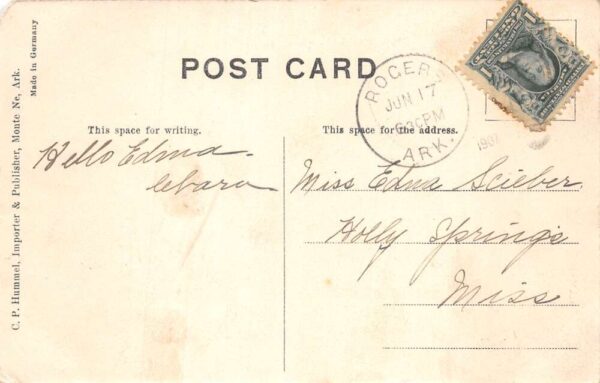 POST CARD
Made in Germany
C. P. Hummel, Importer & Publisher, Monte Ne, Ark.
ROGERS
JUN 17
630PM
ARK.
1907
This space for writing.
Hello Edna -
Clara -
This space for the address.
Miss Edna Scieber
Holly Springs
Miss